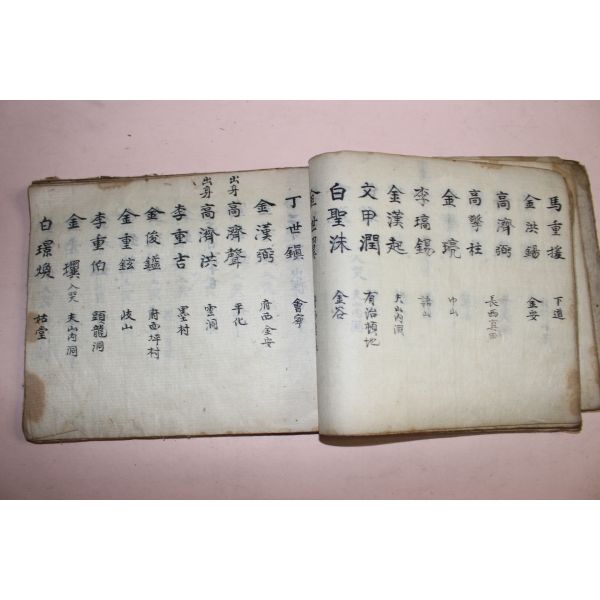 馬重援 下道
金洪錫 金安
高濟弼 長西
高擎柱
金 中山
李瑀錫 諸山
金漢起 大山內洞
文甲潤 有治幀地
白聖洙 金谷
金世
丁世鎭 會寧
金漢弼 府西 金安
出身 高濟聲 平化
出身 高濟洪 雪洞
李重吉 墨村
金俊鎰 府西坪村
金重鉉 岐山
李重伯 頭龍洞
金 大山內洞
白璟煥 枯堂